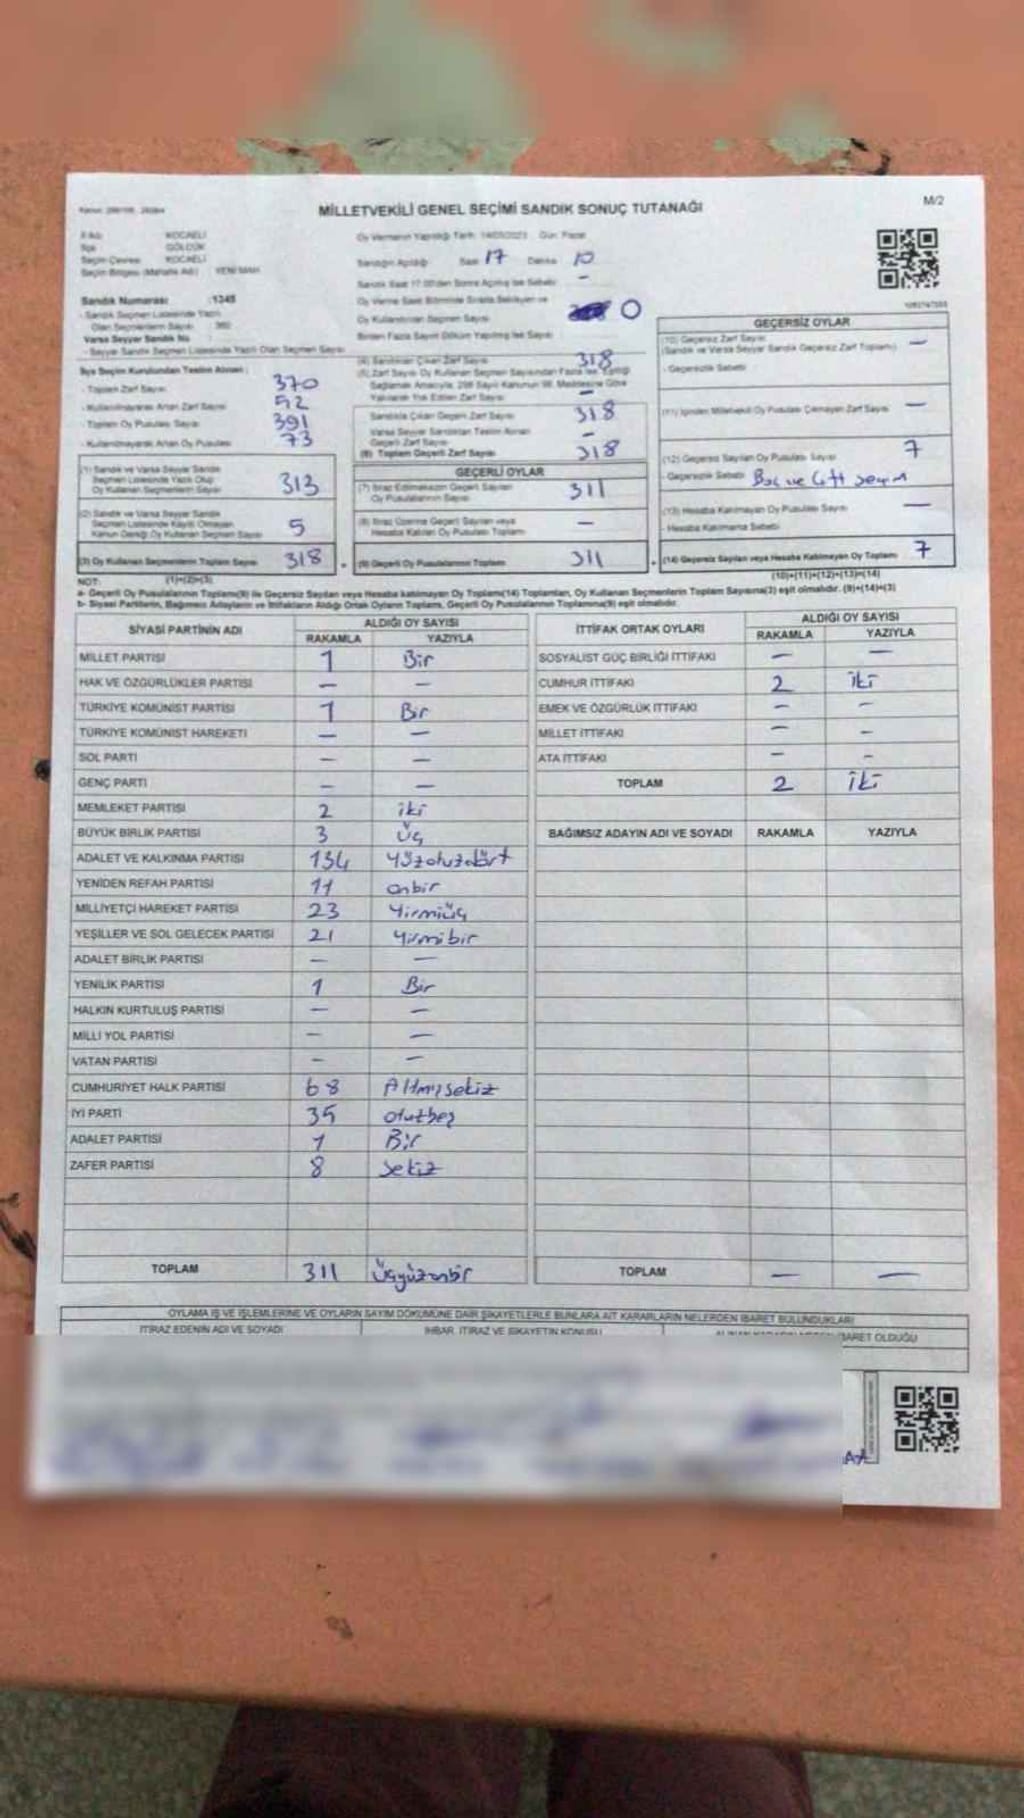 MİLLETVEKİLİ GENEL SEÇİMİ SANDIK SONUÇ TUTANAĞI
M/2
İl Adı KOCAELİ
İlçe GÖLCÜK
Seçim Çevresi KOCAELİ
Seçim Bölgesi (Mahalle Adı) YENİ MAH
Sandık Numarası :1345
- Sandık Seçmen Listesinde Yazılı
Olan Seçmenlerin Sayısı
Varsa Seyyar Sandık No
- Seyyar Sandık Seçmen Listesinde Yazılı Olan Seçmen Sayısı
Oy Vermenin Yapıldığı Tarih: 14/05/2023 Gün: Pazar
Sandığın Açıldığı Saat 17 Dakika 10
Sandık Saat 17.00'den Sonra Açılmış İse Sebebi -
Oy Verme Saati Bitiminde Sırada Bekleyen ve
Oy Kullandırılan Seçmen Sayısı 0
Birden Fazla Sayım Döküm Yapılmış İse Sayısı
İlçe Seçim Kurulundan Teslim Alınan :
- Toplam Zarf Sayısı 370
- Kullanılmayarak Artan Zarf Sayısı 52
- Toplam Oy Pusulası Sayısı 391
- Kullanılmayarak Artan Oy Pusulası 73
(1) Sandık ve Varsa Seyyar Sandık
Seçmen Listesinde Yazılı Olup
Oy Kullanan Seçmenlerin Sayısı 313
(2) Sandık ve Varsa Seyyar Sandık
Seçmen Listesinde Kayıtlı Olmayan
Kanun Gereği Oy Kullanan Seçmen Sayısı 5
(3) Oy Kullanan Seçmenlerin Toplam Sayısı 318
(1)+(2)=(3)
(4) Sandıktan Çıkan Zarf Sayısı 318
(5) Zarf Sayısı Oy Kullanan Seçmen Sayısından Fazla İse, Eşitliği
Sağlamak Amacıyla, 298 Sayılı Kanunun 98. Maddesine Göre
Yakılarak Yok Edilen Zarf Sayısı -
Sandıkta Çıkan Geçerli Zarf Sayısı 318
Varsa Seyyar Sandıktan Teslim Alınan
Geçerli Zarf Sayısı -
(6) Toplam Geçerli Zarf Sayısı 318
GEÇERLİ OYLAR
(7) İtiraz Edilmeksizin Geçerli Sayılan
Oy Pusulalarının Sayısı 311
(8) İtiraz Üzerine Geçerli Sayılan veya
Hesaba Katılan Oy Pusulası Toplamı -
(9) Geçerli Oy Pusulalarının Toplamı 311
GEÇERSİZ OYLAR
(10) Geçersiz Zarf Sayısı
(Sandık ve Varsa Seyyar Sandık Geçersiz Zarf Toplamı) -
- Geçersizlik Sebebi
(11) İçinden Milletvekili Oy Pusulası Çıkmayan Zarf Sayısı -
(12) Geçersiz Sayılan Oy Pusulası Sayısı 7
- Geçersizlik Sebebi Boş ve Çift seçim
(13) Hesaba Katılmayan Oy Pusulası Sayısı -
- Hesaba Katılmama Sebebi
(14) Geçersiz Sayılan veya Hesaba Katılmayan Oy Toplamı 7
(10)+(11)+(12)+(13)=(14)
NOT:
a- Geçerli Oy Pusulalarının Toplamı(9) ile Geçersiz Sayılan veya Hesaba katılmayan Oy Toplamı(14) Toplamları, Oy Kullanan Seçmenlerin Toplam Sayısına(3) eşit olmalıdır. (9)+(14)=(3)
b- Siyasi Partilerin, Bağımsız Adayların ve İttifakların Aldığı Ortak Oyların Toplamı, Geçerli Oy Pusulalarının Toplamına(9) eşit olmalıdır.
SİYASİ PARTİNİN ADI ALDIĞI OY SAYISI
RAKAMLA YAZIYLA
MİLLET PARTİSİ 1 Bir
HAK VE ÖZGÜRLÜKLER PARTİSİ - -
TÜRKİYE KOMÜNİST PARTİSİ 1 Bir
TÜRKİYE KOMÜNİST HAREKETİ - -
SOL PARTİ - -
GENÇ PARTİ - -
MEMLEKET PARTİSİ 2 iki
BÜYÜK BİRLİK PARTİSİ 3 üç
ADALET VE KALKINMA PARTİSİ 134 Yüzotuzdört
YENİDEN REFAH PARTİSİ 11 onbir
MİLLİYETÇİ HAREKET PARTİSİ 23 Yirmiüç
YEŞİLLER VE SOL GELECEK PARTİSİ 21 Yirmibir
ADALET BİRLİK PARTİSİ - -
YENİLİK PARTİSİ 1 Bir
HALKIN KURTULUŞ PARTİSİ - -
MİLLİ YOL PARTİSİ - -
VATAN PARTİSİ - -
CUMHURİYET HALK PARTİSİ 68 Altmışsekiz
İYİ PARTİ 35 otuzbeş
ADALET PARTİSİ 1 Bir
ZAFER PARTİSİ 8 sekiz
TOPLAM 311 Üçyüzonbir
İTTİFAK ORTAK OYLARI ALDIĞI OY SAYISI
RAKAMLA YAZIYLA
SOSYALİST GÜÇ BİRLİĞİ İTTİFAKI - -
CUMHUR İTTİFAKI 2 iki
EMEK VE ÖZGÜRLÜK İTTİFAKI - -
MİLLET İTTİFAKI - -
ATA İTTİFAKI - -
TOPLAM 2 iki
BAĞIMSIZ ADAYIN ADI VE SOYADI RAKAMLA YAZIYLA
TOPLAM - -
OYLAMA İŞ VE İŞLEMLERİNE VE OYLARIN SAYIM DÖKÜMÜNE DAİR ŞİKAYETLERLE BUNLARA AİT KARARLARIN NELERDEN İBARET BULUNDUKLARI
İTİRAZ EDENİN ADI VE SOYADI İHBAR, İTİRAZ VE ŞİKAYETİN KONUSU İBARET OLDUĞU